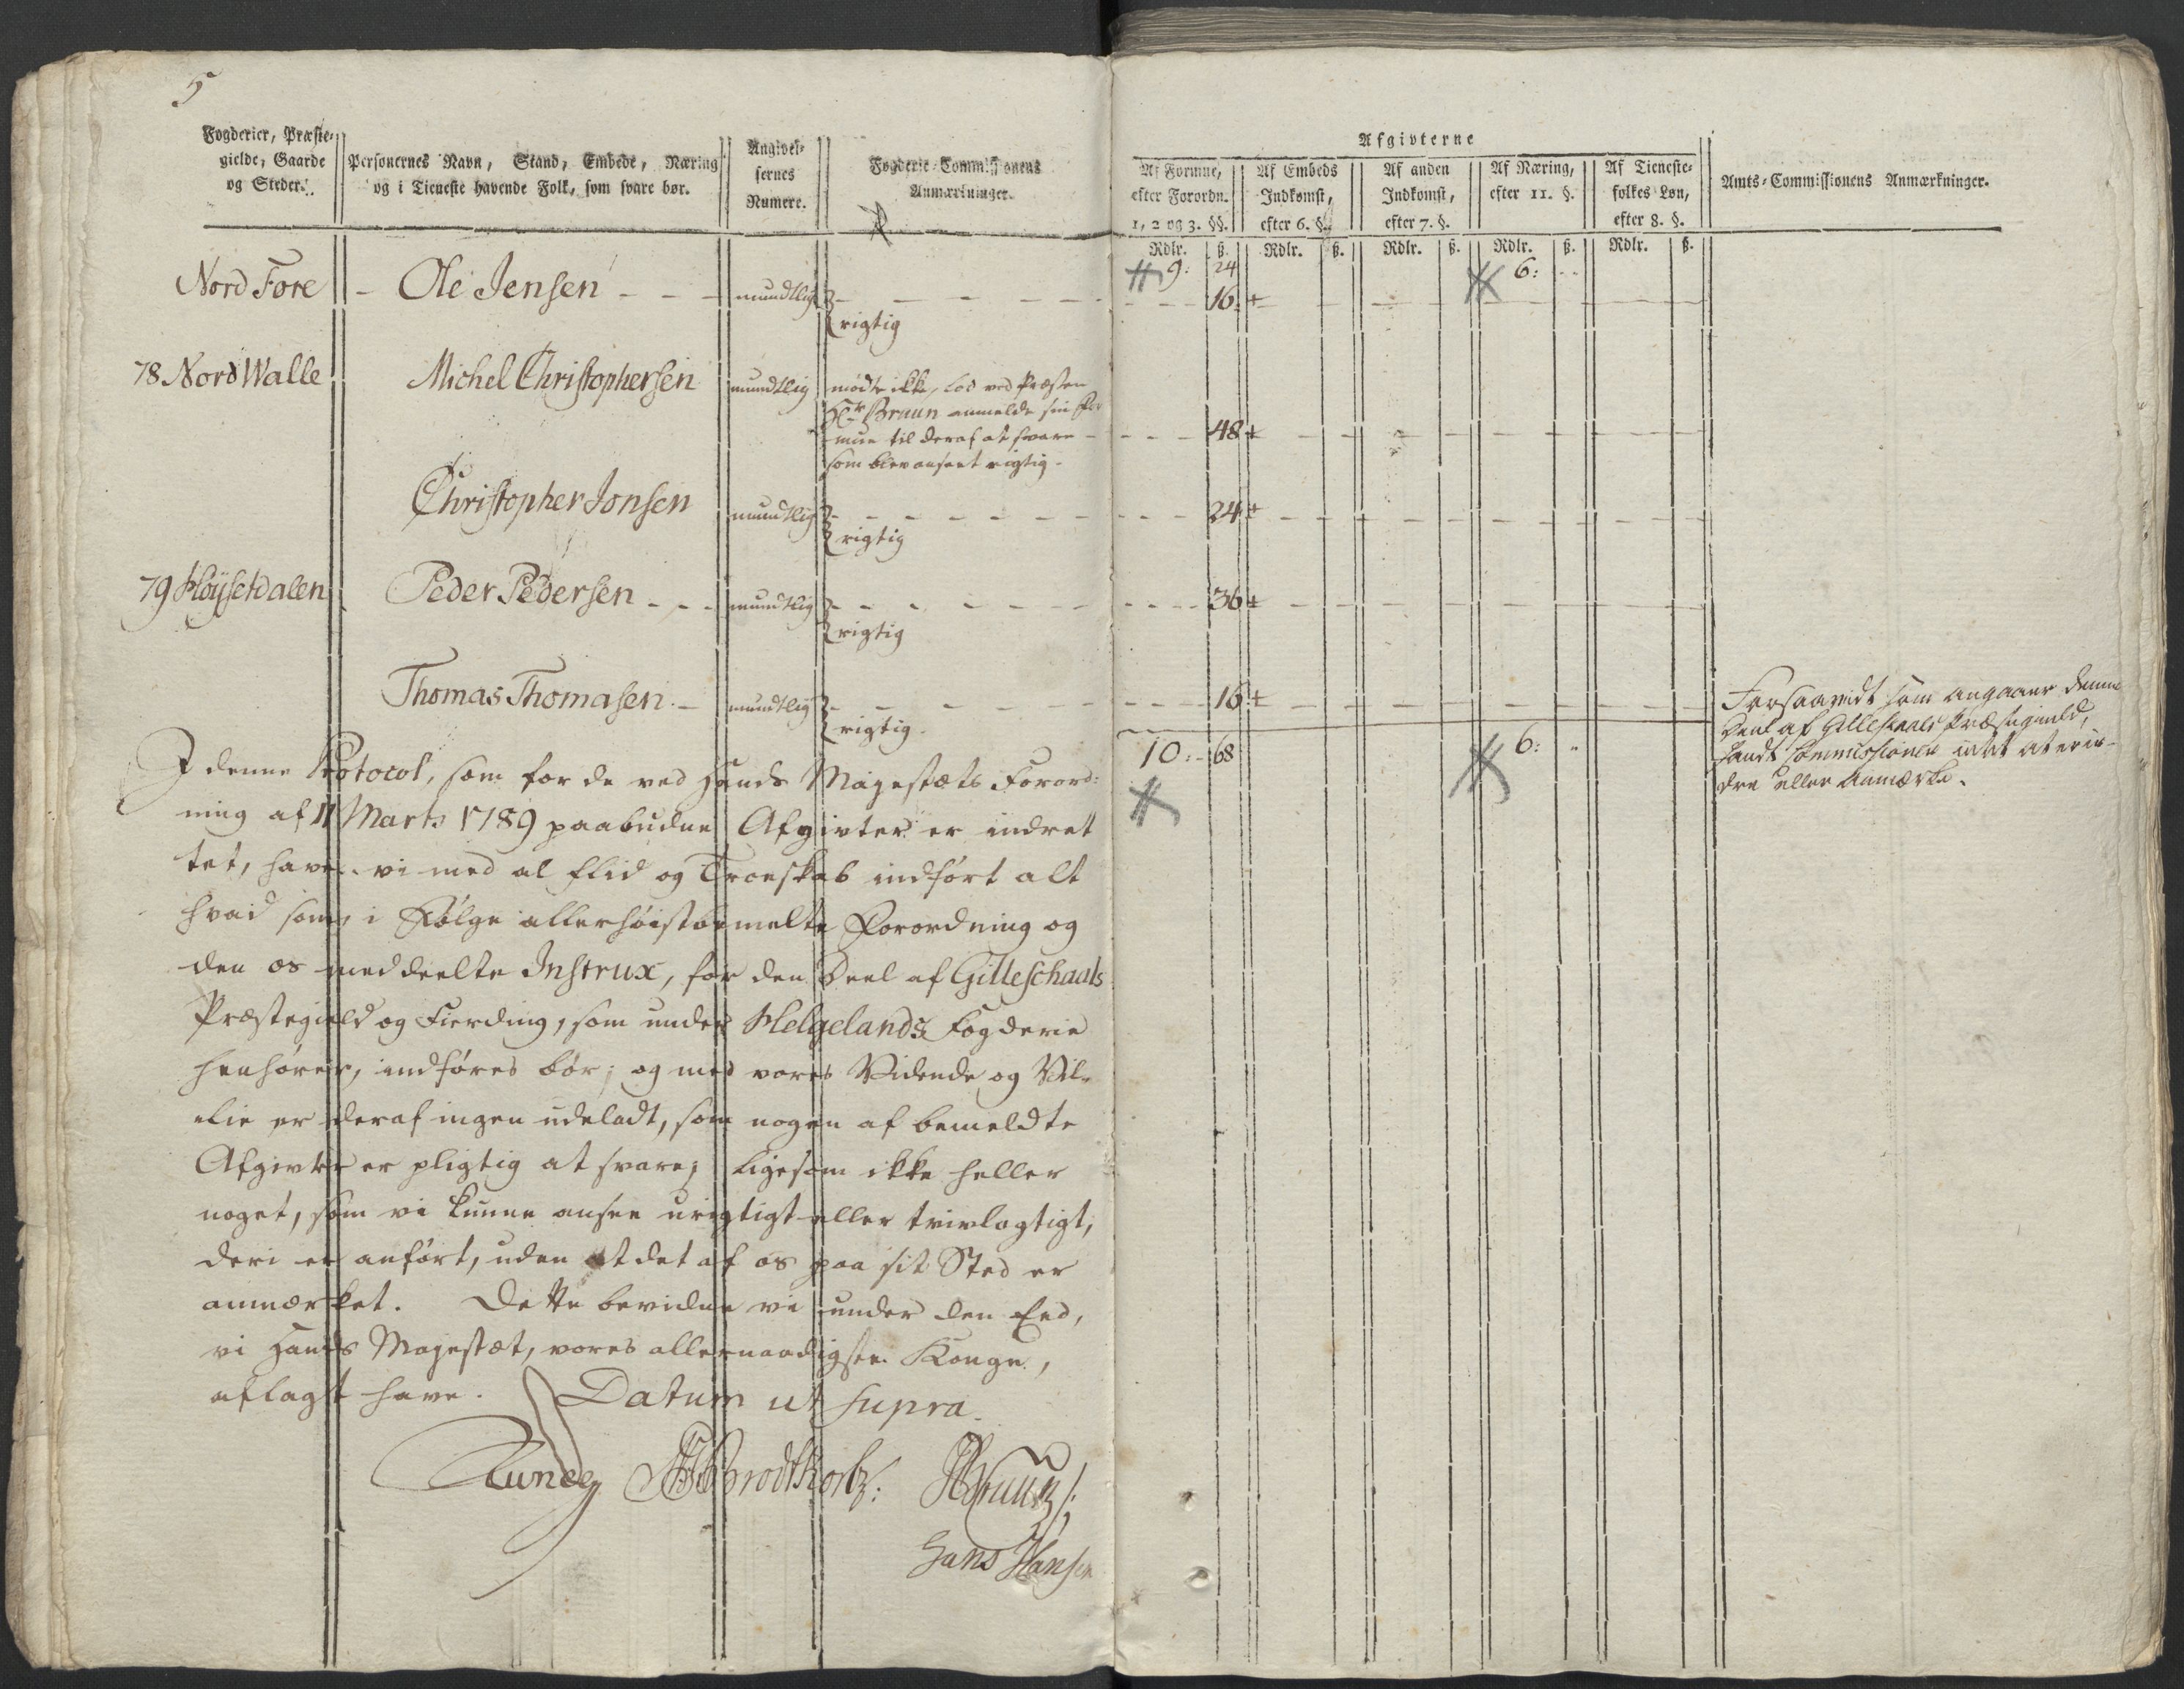 5
Fogderier, Præste-
gielde, Gaarde
og Steder.
Personernes Navn, Stand, Embede, Næring
og i Tieneste havende Folk, som svare bør.
Angivel-
sernes
Numere.
Fogderie-Commissionens
Anmærkninger.
Afgivterne
Af Formue,
efter Forordn.
1, 2 og 3. §§.
Af Embeds
Indkomst,
efter 6. §.
Af anden
Indkomst,
efter 7. §.
Af Næring,
efter 11. §.
Af Tieneste-
folkes Løn,
efter 8. §.
Amts-Commissionens Anmærkninger.
Rdlr. ß. Rdlr. ß. Rdlr. ß. Rdlr. ß. Rdlr. ß.
9: 24 6: --
Nord Fore - Ole Jensen - - - mundtlig - - - - - 16:
rigtig
78 Nord Walle Michel Christophersen mundtlig mødte ikke, lod ved Præsten
Hr Bruun anmelde sin For
mue til deraf at svare - - - - 48
som blev anseet rigtig.
Christopher Jonsen mundtlig - - - - - - 24
rigtig
79 Høysetdalen Peder Pedersen - - - mundtlig - - - - - - 36
rigtig
Thomas Thomasen. - mundtlig - - - - - - 16
rigtig.
10: - 68 6: ..
Forsaavidt som angaaer denne
Deel af Gilleskaals Præstegield,
fandt Commissionen intet at erin-
dre eller Anmærke.
I denne Protocol, som for de ved Hands Majestæts Forord:
ning af 11 Marts 1789 paabudne Afgivter er indret
tet, have vi med al Flid og Troeskab indført alt
hvad som, i Følge allerhøistbemelte Forordning og
den os meddeelte Instrux, for den Deel af Gilleschaals
Præstegield og Fierding, som under Helgelands Fogderie
henhører, indføres bør; og med vores Vidende og Vil-
lie er deraf ingen udeladt, som nogen af bemeldte
Afgivter er pligtig at svare; ligesom ikke heller
noget, som vi kunne ansee urigtigt eller tvivlagtigt,
deri er anført, uden at det af os paa sit Sted er
anmærket. Dette bevidne vi under den Eed,
vi Hands Majestæt, vores allernaadigste Konge,
aflagt have. Datum ut supra.
Brodtkorb: Bruun
Hans Hansen